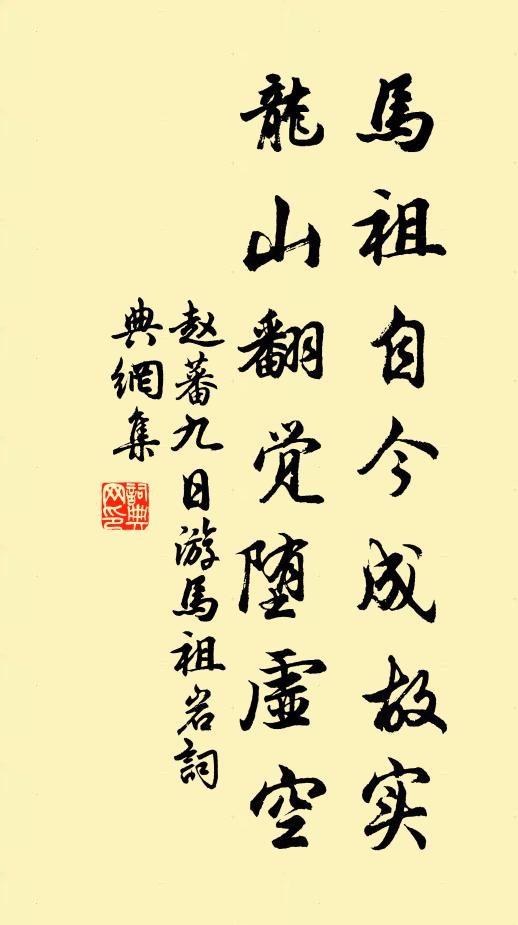 馬祖自今成故实
龍山翻觉堕虛空
赵蕃九日游馬祖岩詞
典網集
詞典
网印